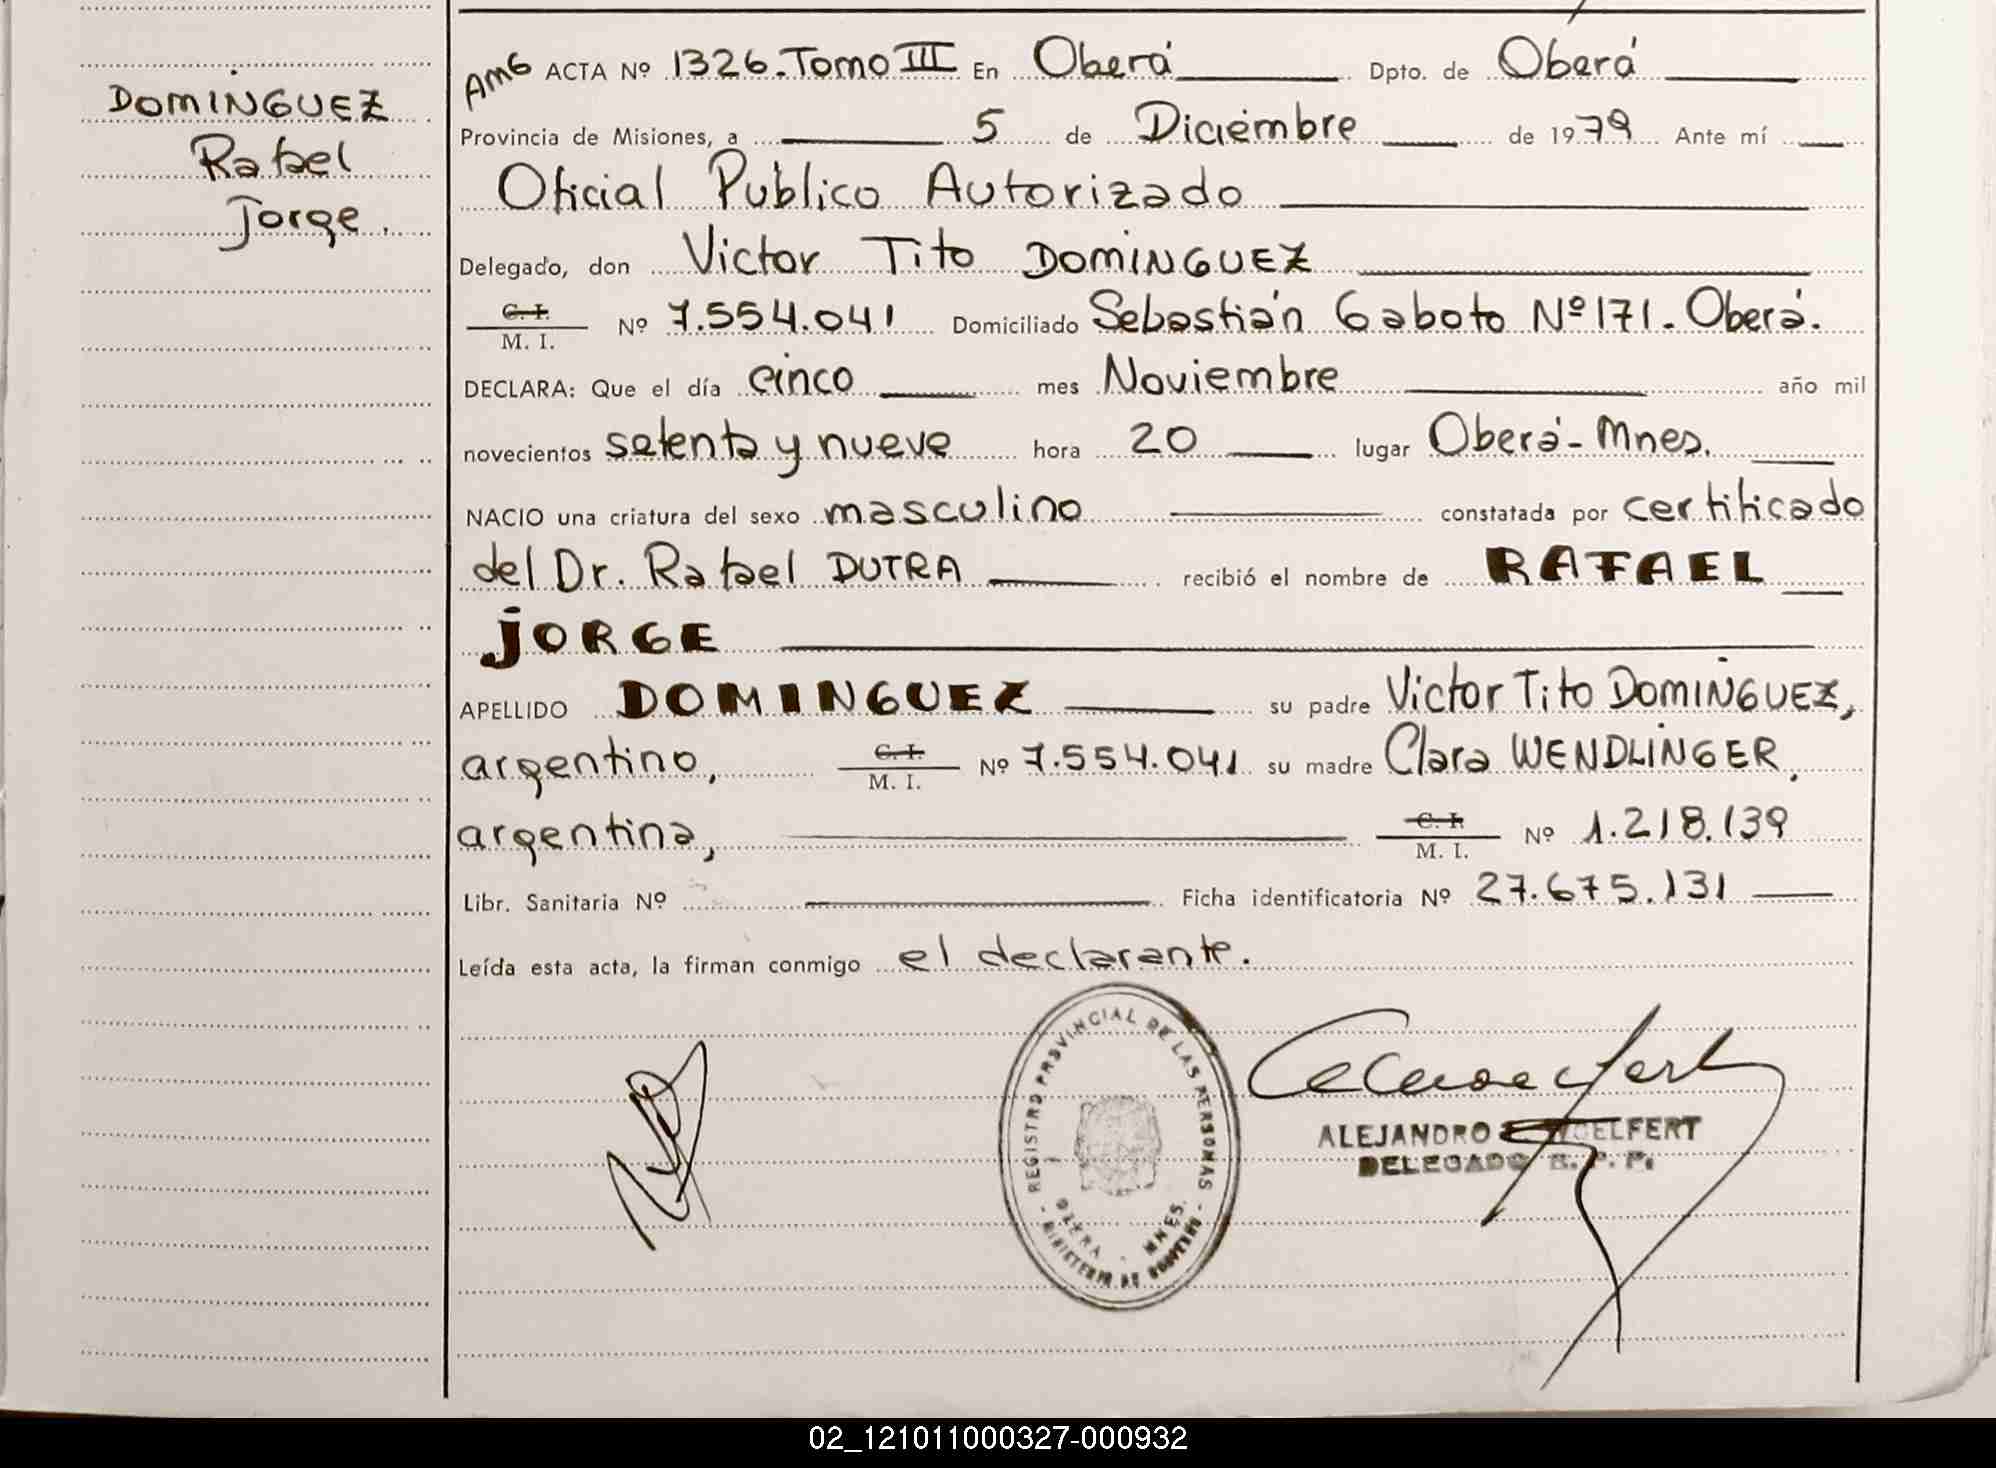 DOMINGUEZ
Rafael
Jorge.
AMG ACTA Nº 1326. Tomo III En Oberá Dpto. de Oberá
Provincia de Misiones, a 5 de Diciembre de 1979 Ante mí
Oficial Publico Autorizado
Delegado, don Victor Tito DOMINGUEZ
C. I.
M. I. Nº 7.554.041 Domiciliado Sebastián Gaboto Nº 171. Oberá.
DECLARA: Que el día cinco mes Noviembre año mil
novecientos setenta y nueve hora 20 lugar Oberá-Mnes.
NACIO una criatura del sexo masculino constatada por certificado
del Dr. Rafael DUTRA recibió el nombre de RAFAEL
JORGE
APELLIDO DOMINGUEZ su padre Victor Tito DOMINGUEZ,
argentino, C. I. M. I. Nº 7.554.041 su madre Clara WENDLINGER,
argentina, C. I. M. I. Nº 1.218.139
Libr. Sanitaria Nº Ficha identificatoria Nº 27.675.131
Leída esta acta, la firman conmigo el declarante.
REGISTRO PROVINCIAL DE LAS PERSONAS
OBERA - MNES.
- MINISTERIO DE GOBIERNO -
ALEJANDRO
DELEGADO R. P. P.
02_121011000327-000932